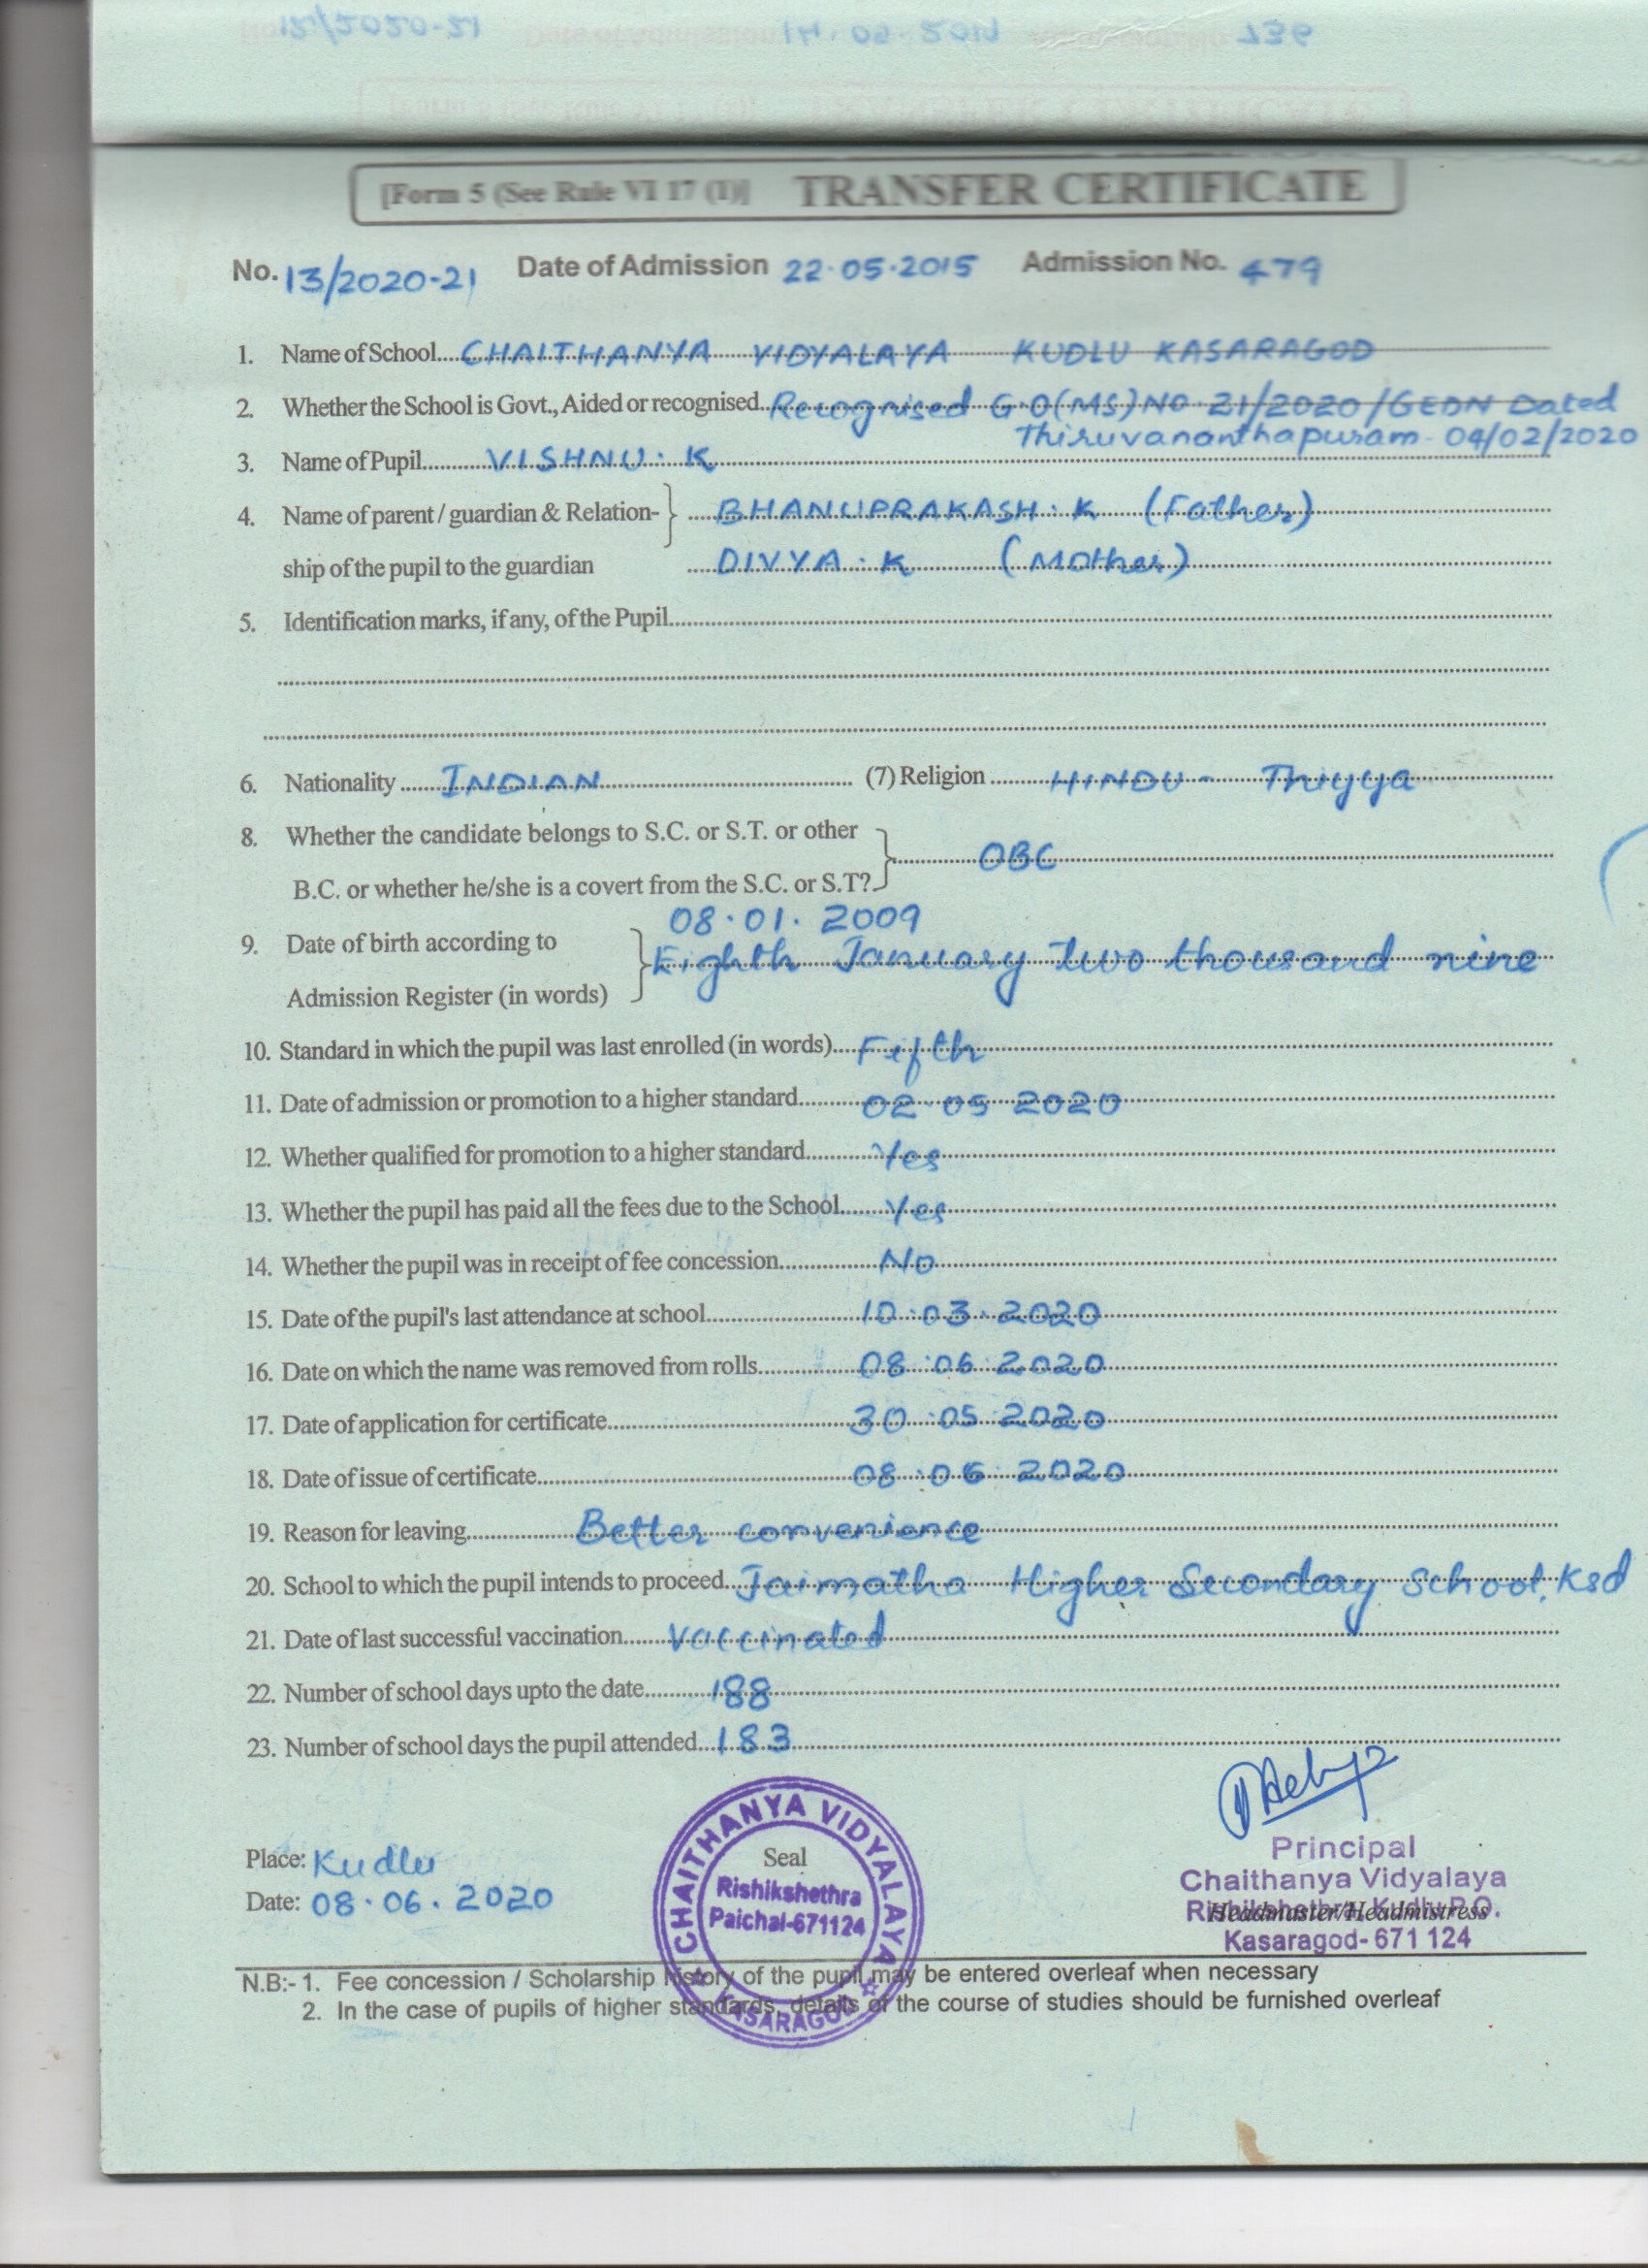 [Form 5 (See Rule VI 17 (1)] TRANSFER CERTIFICATE
No. 13/2020-21 Date of Admission 22.05.2015 Admission No. 479
1. Name of School CHAITHANYA VIDYALAYA KUDLU KASARAGOD
2. Whether the School is Govt., Aided or recognised Recognised G.O(MS)NO 21/2020/GEDN Dated
Thiruvananthapuram - 04/02/2020
3. Name of Pupil VISHNU. K
4. Name of parent / guardian & Relation- BHANUPRAKASH. K (Father)
ship of the pupil to the guardian DIVYA. K (Mother)
5. Identification marks, if any, of the Pupil
6. Nationality INDIAN (7) Religion HINDU - Thiyya
8. Whether the candidate belongs to S.C. or S.T. or other
OBC
B.C. or whether he/she is a covert from the S.C. or S.T?
08.01.2009
9. Date of birth according to
Eighth January two thousand nine
Admission Register (in words)
10. Standard in which the pupil was last enrolled (in words) Fifth
11. Date of admission or promotion to a higher standard 02 05 2020
12. Whether qualified for promotion to a higher standard Yes
13. Whether the pupil has paid all the fees due to the School Yes
14. Whether the pupil was in receipt of fee concession No
15. Date of the pupil's last attendance at school 10.03.2020
16. Date on which the name was removed from rolls 08.06.2020
17. Date of application for certificate 30.05.2020
18. Date of issue of certificate 08.06.2020
19. Reason for leaving Better convenience
20. School to which the pupil intends to proceed Jaimatha Higher Secondary School, Ksd
21. Date of last successful vaccination Vaccinated
22. Number of school days upto the date 188
23. Number of school days the pupil attended 183
CHAITHANYA VIDYALAYA
Seal
Rishikshethra
Paichal-671124
KASARAGOD
Principal
Chaithanya Vidyalaya
Rishikshethra, Kudlu P.O.
Headmaster/Headmistress
Kasaragod- 671 124
Place: Kudlu
Date: 08.06.2020
N.B:- 1. Fee concession / Scholarship history of the pupil may be entered overleaf when necessary
2. In the case of pupils of higher standards, details of the course of studies should be furnished overleaf